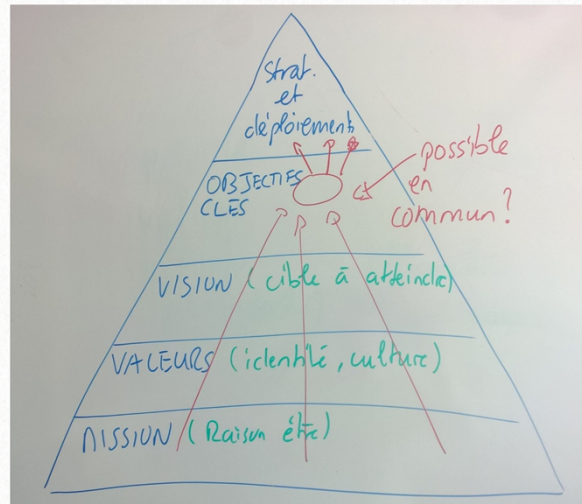 strat.
et
déploiement
OBJECTIFS
CLÉS
possible
en
commun?
VISION (cible à atteindre)
VALEURS (identité, culture)
MISSION (Raison être)